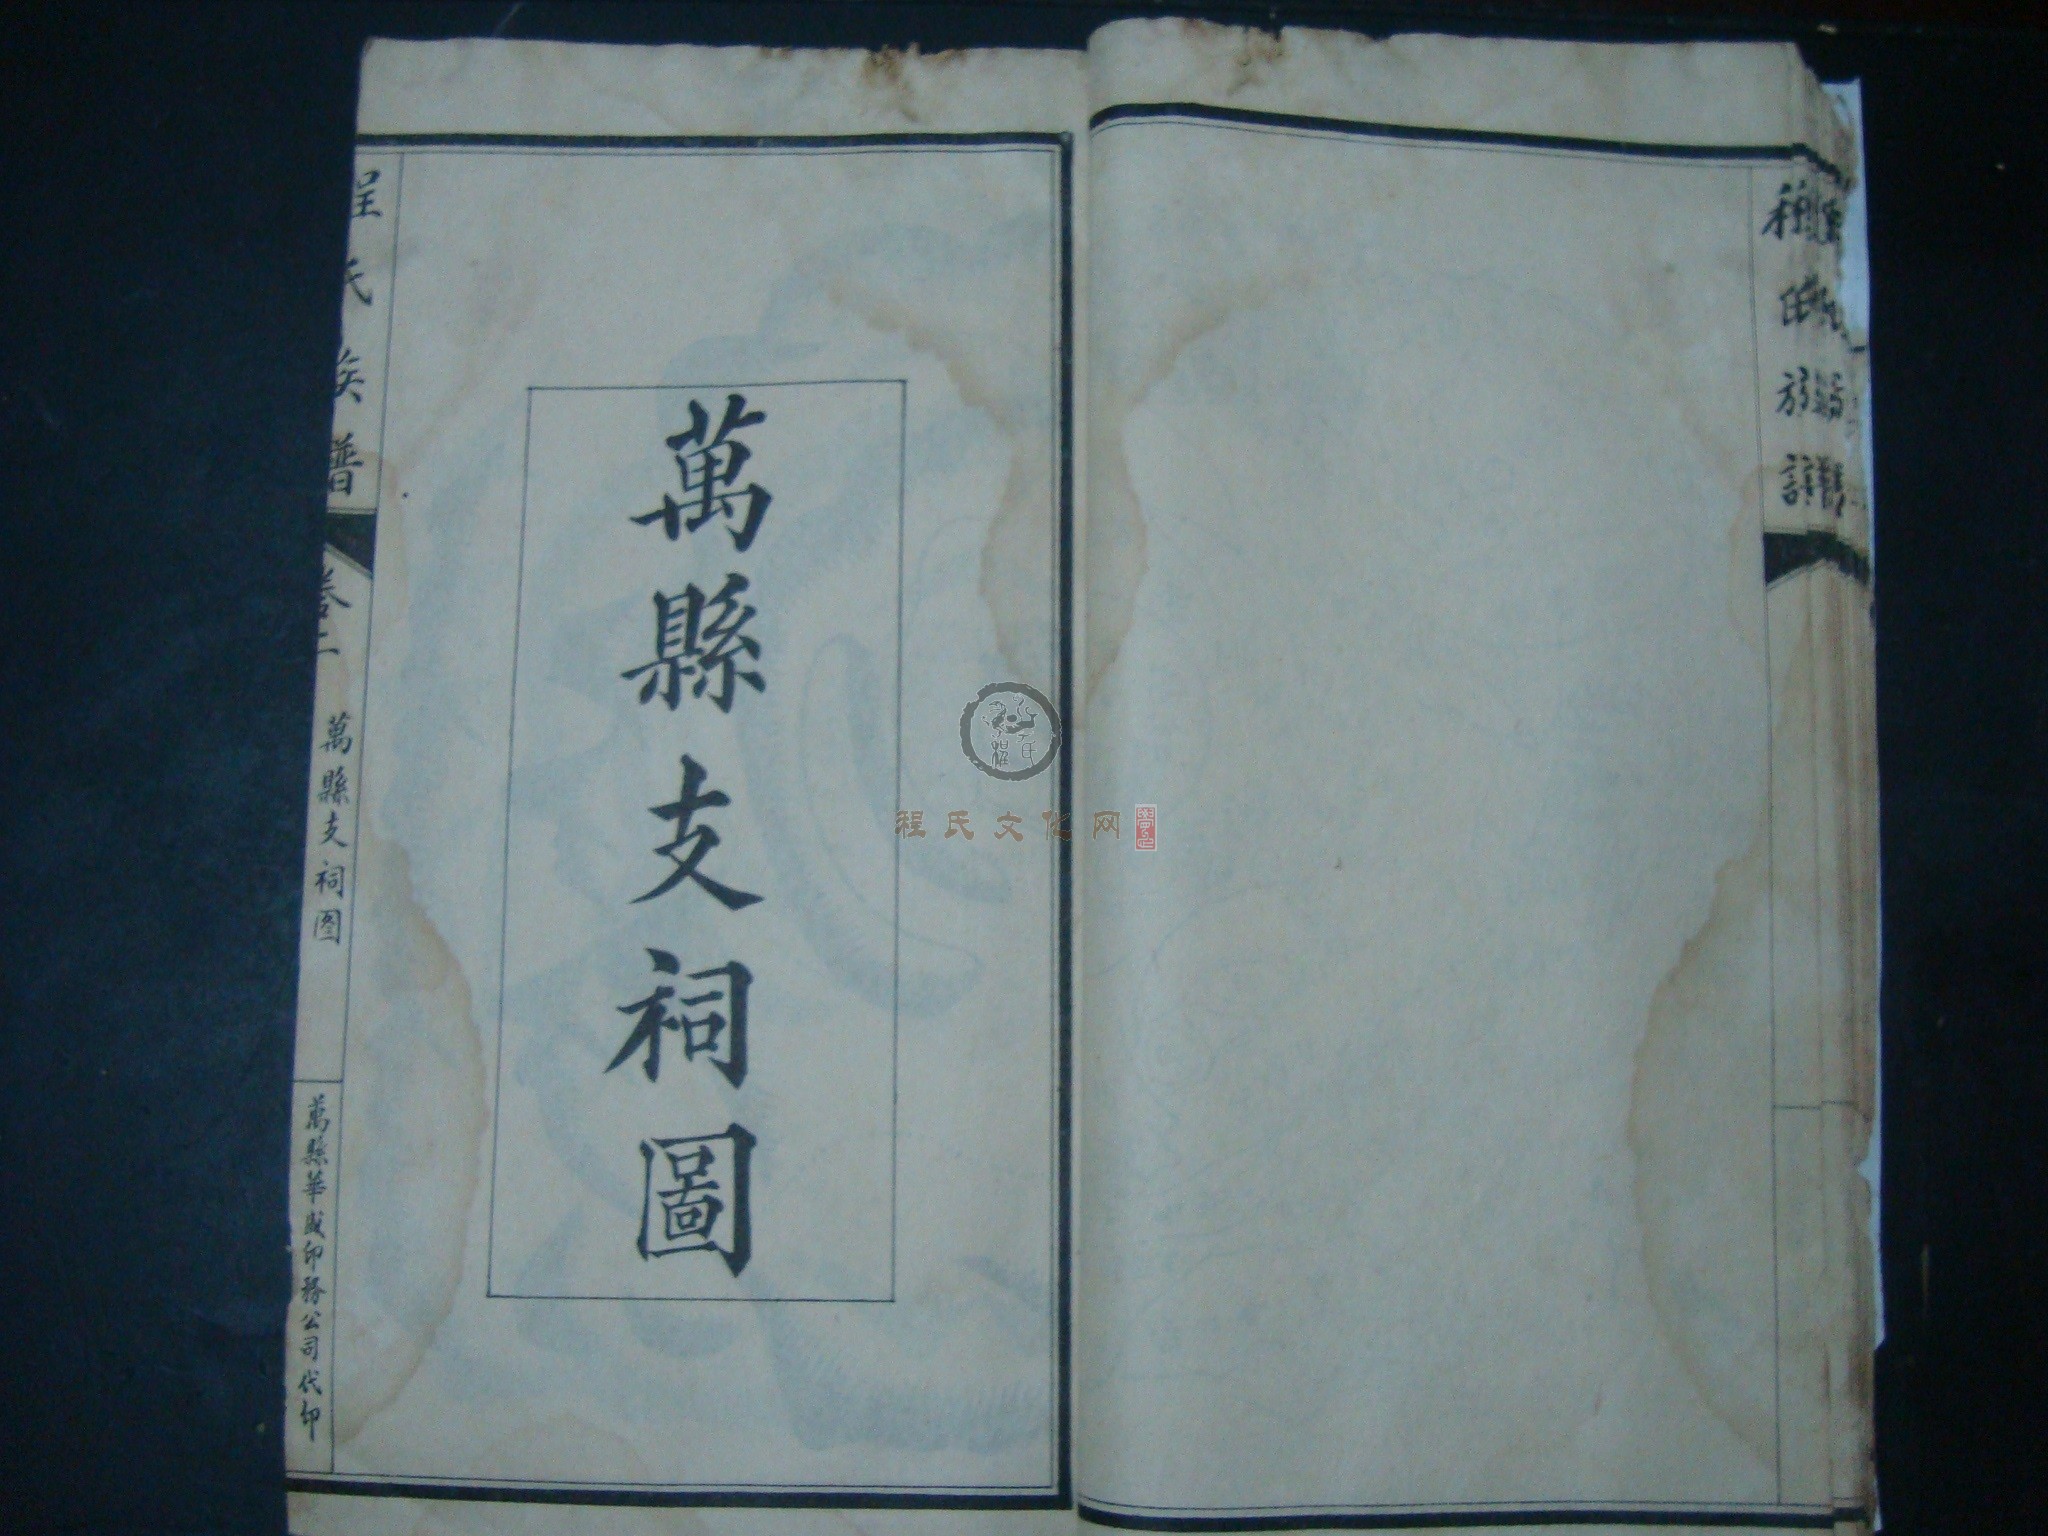 萬縣支祠圖
程氏族譜
卷二
萬縣支祠图
萬縣華成印務公司代印
程氏文化网